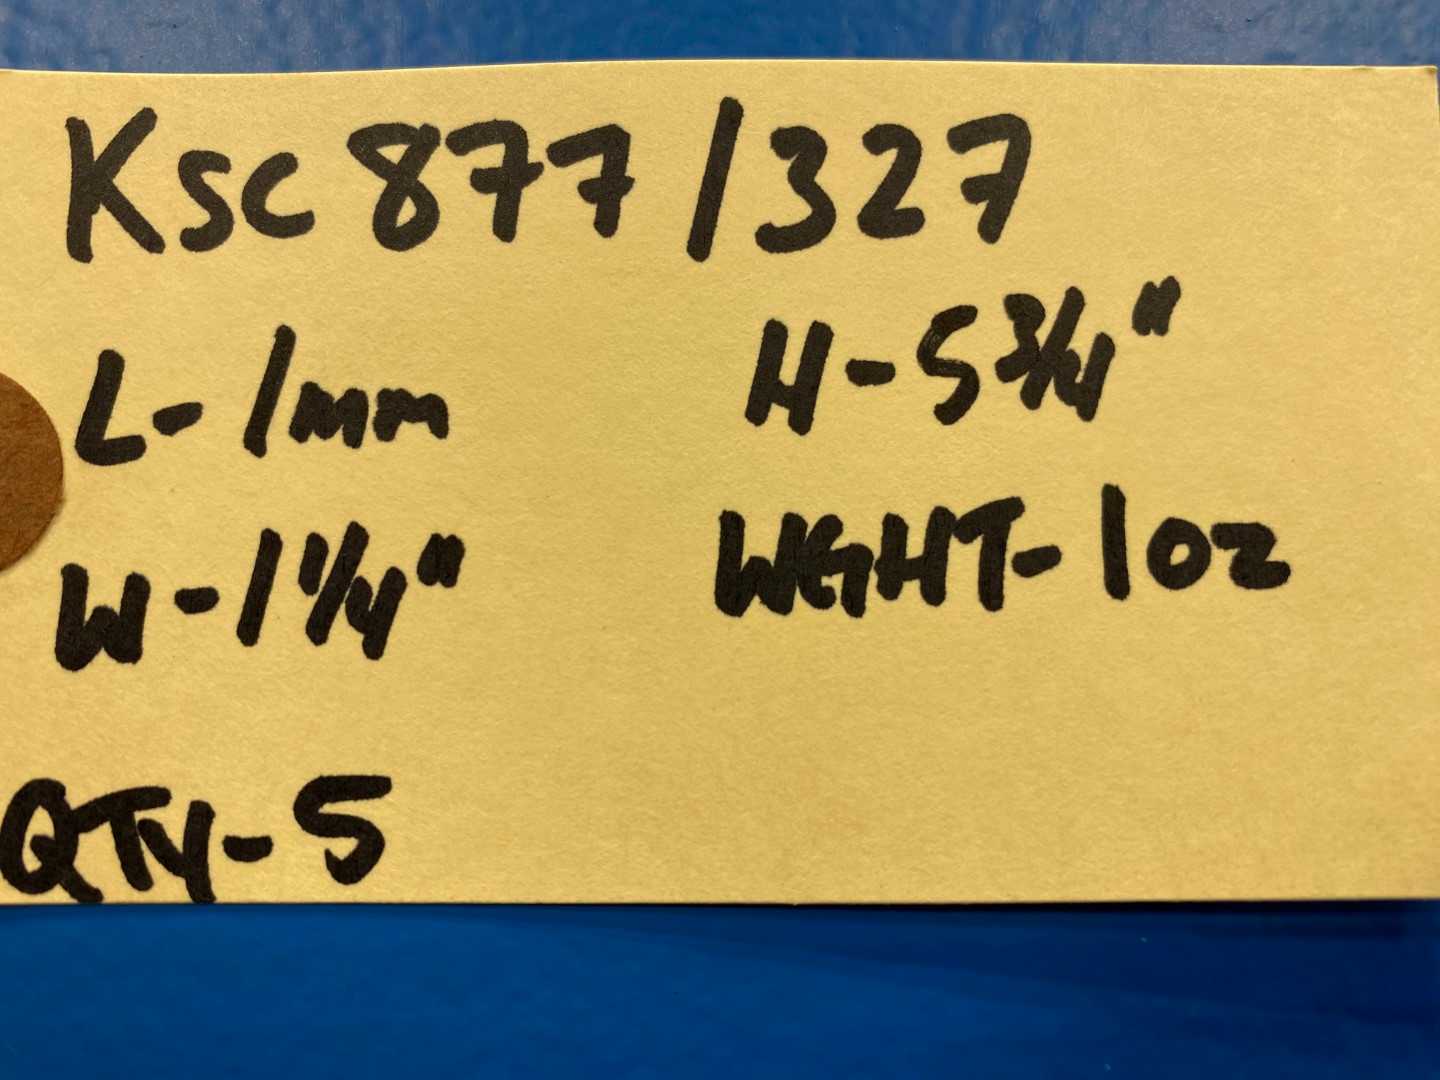 KSC 877 / 327
L - 1mm
H - 5 3/4"
W - 1 1/4"
WGHT - 1 oz
QTY - 5